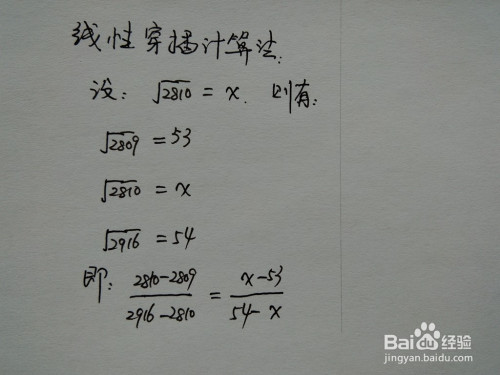 线性穿插计算法:
设: √2810 = x. 则有:
√2809 = 53
√2810 = x
√2916 = 54
即: (2810-2809)/(2916-2810) = (x-53)/(54-x)
Baidu经验
jingyan.baidu.com